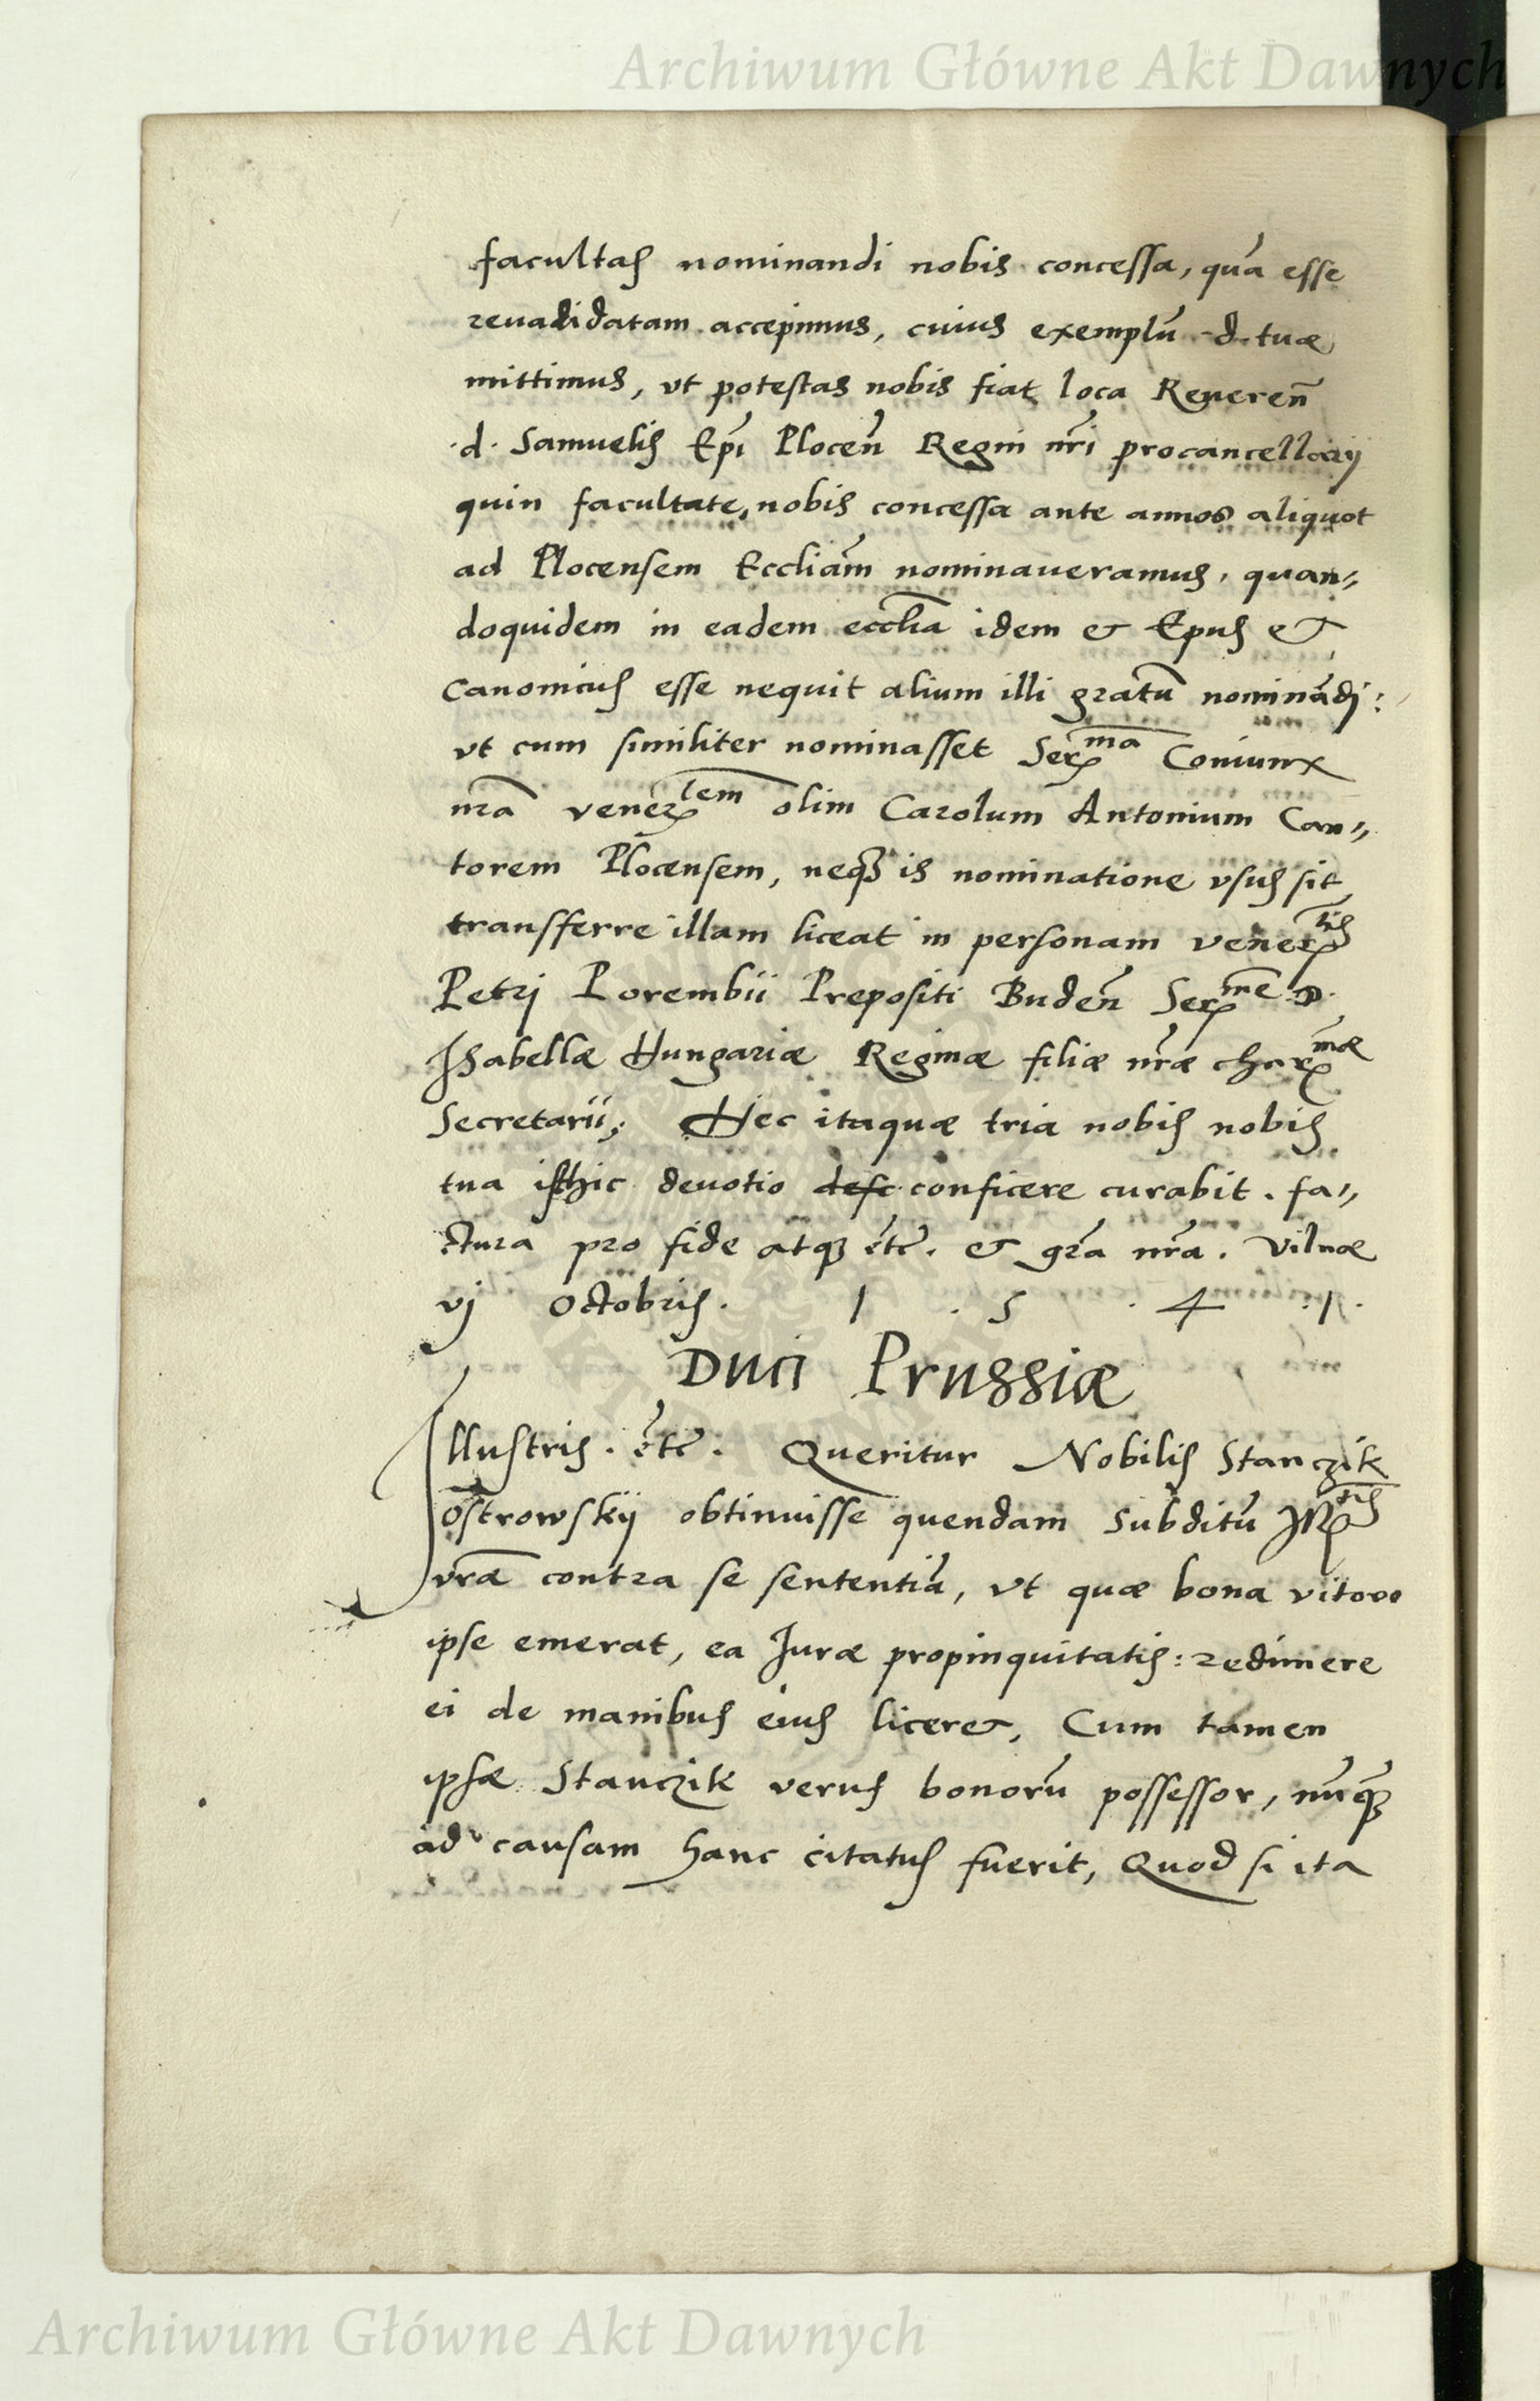 Archiwum Główne Akt Dawnych
facultas nominandi nobis concessa, quā esse
reuadidatam accepimus, cuius exemplū d. tuæ
mittimus, vt potestas nobis fiat loca Reueren̄
d. Samuelis Ep̄i Plocen̄ Regni nr̄i procancellarij
quin facultate, nobis concessa ante annos aliquot
ad Plocensem Eccliām nominaueramus, quan„
doquidem in eadem ecclīa idem & Epus &
Canonicus esse nequit alium illi gratū nominādi:
vt cum similiter nominasset Ser^ma Coniunx
nr̄a vener^lem olim Carolum Antonium Can„
torem Plocensem, neq3 is nominatione vsus sit
transferre illam liceat in personam vener^lis
Petri Porembii Prepositi Buden̄ Ser^me D.
Isabellæ Hungariæ Reginæ filiæ nr̄æ char^mæ
Secretarii; Hec itaquæ tria nobis nobis
tua isthic deuotio desc conficere curabit. fa„
ctura pro fide atq3 ētc̄. & gr̄a nr̄a. Vilnæ
vj Octobris. 1 . 5 . 4 . 1.
Duci Prussiæ
Illustris. ētc̄. Queritur Nobilis Stanczik
Ostrowskij obtinuisse quendam subditū Ill^tis
vr̄æ contra se sententiā, vt quæ bona
ipse emerat, ea Juræ propinquitatis: redimere
ei de manibus eius liceret, Cum tamen
ipsæ Stanczik verus bonorū possessor, nūq3
ad causam hanc citatus fuerit, Quod si ita
Archiwum Główne Akt Dawnych